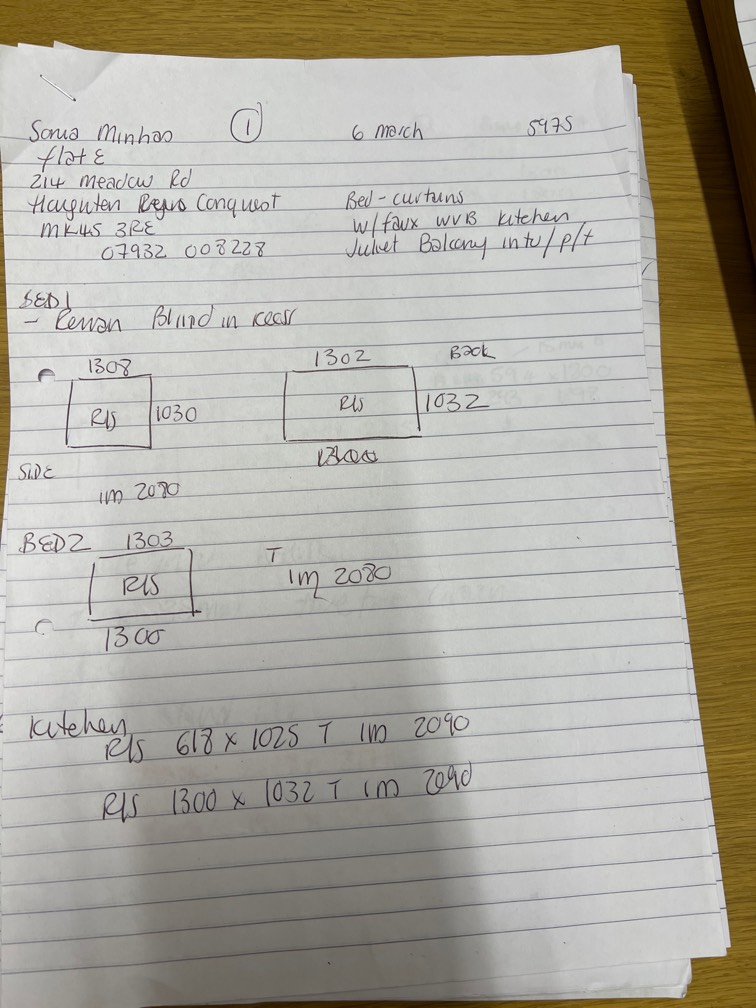 Sonia Minhas ① 6 march 5975
flat E
214 meadow Rd
Conquest Bed - curtains
MK45 3RE w/faux WVB kitchen
07932 008228 Juliet Balcony intu/p/t
BED1
- Roman Blind in
1308 1302 Back
R/S 1030 R/S 1032
1300
SIDE
1m 2080
BED2 1303
R/S T 1m 2080
1300
kitchen
R/S 618 x 1025 T 1m 2090
R/S 1300 x 1032 T 1m 2090